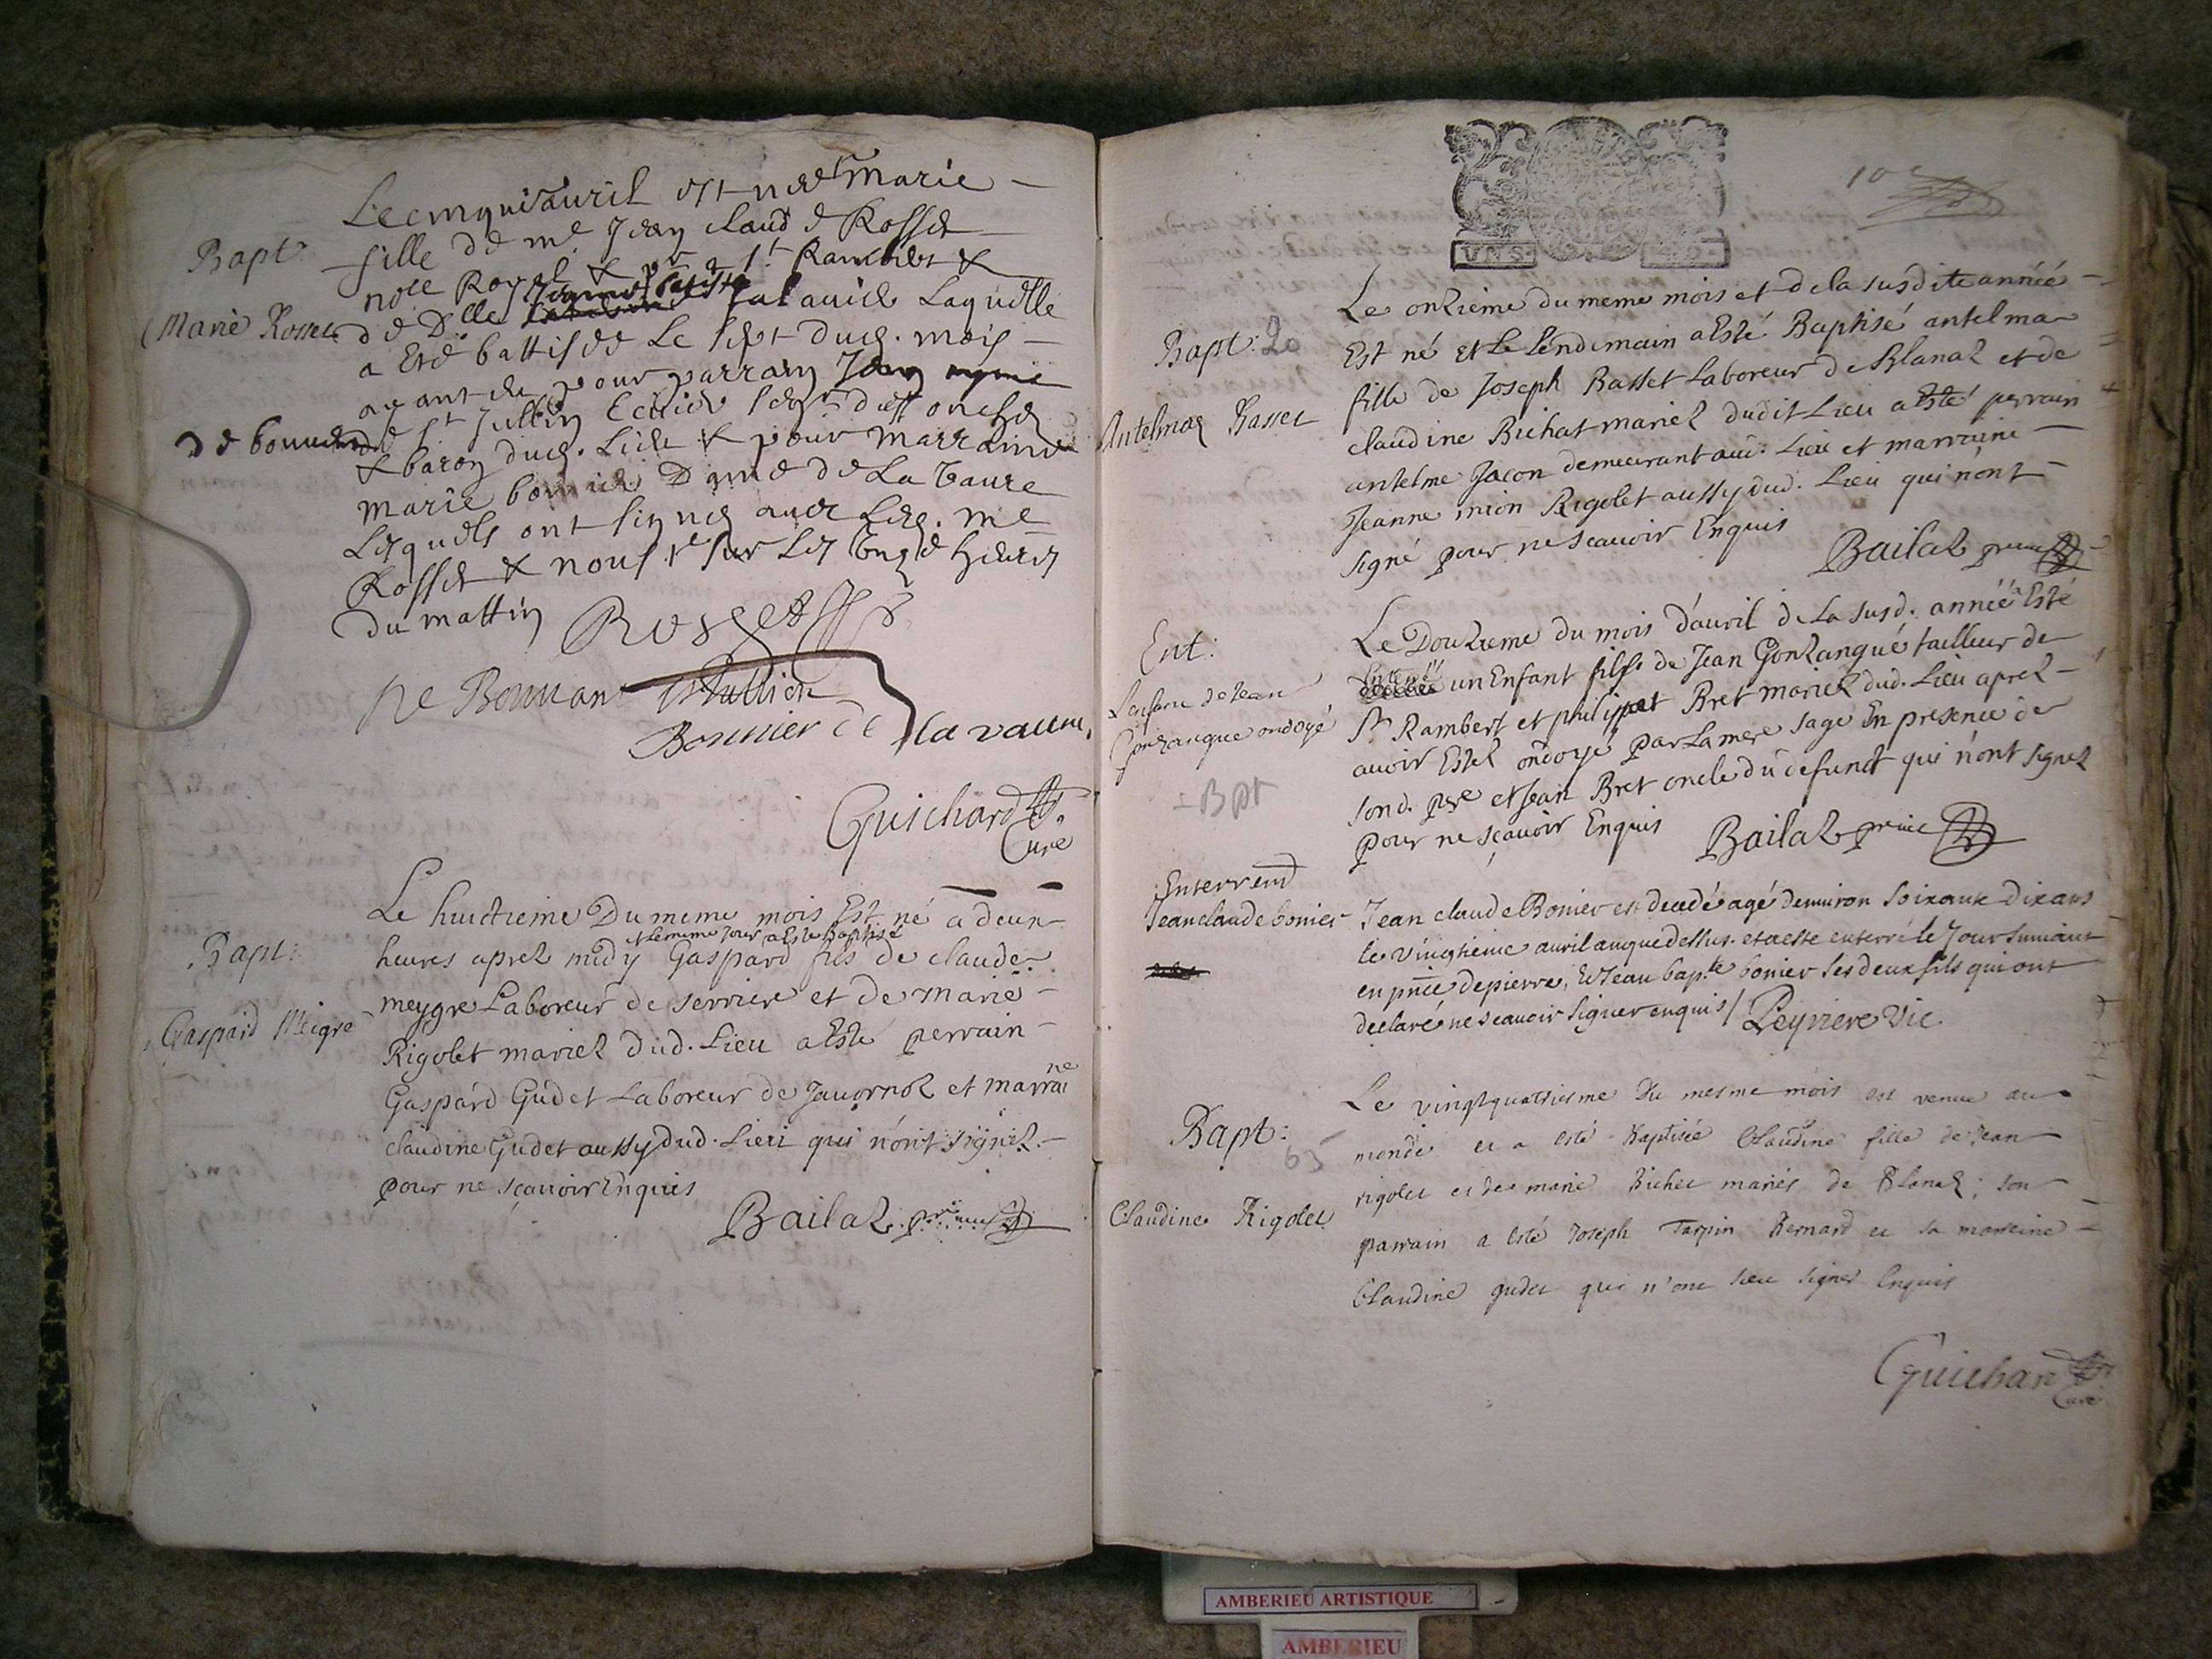 Bapt:
Marie Rosset
Le cinqui avril est née Marie
fille de me Jean Claude Rosset
nore Royal & pr a St Rambert &
de Dlle Jeanne Baptiste laquelle
a Eté battisée Le sept dud. mois
ayant eu pour parrain Jean
de bouuend de St Jullin Ecuier
& baron dud. Lieu & pour marraine
marie bonnier Dame de La Vaure
Lesquels ont signé avec Led. me
Rosset & nous sur Les onze heures
du mattin
Rosset
De Bouuant St Jullien
Bonnier de la vaure
Guichard
Curé
Bapt:
Gaspard Meigre
Le huictieme Du meme mois Est né a deux
et le meme jour a Esté Baptisé
heures aprez midy Gaspard fils de claude
meygre Laboreur de serriere et de marie
Rigolet mariez dud. Lieu a Esté perrain
Gaspard Gudet Laboreur de Javornoz et marraine
claudine Gudet aussy dud. Lieu qui n'ont signez
pour ne sçavoir Enquis
Bailaz
10
Bapt: 20
Antelmaz Basset
Le onzieme du meme mois et de la susdite année
Est né et Le lendemain a Esté Baptisé antelma
fille de Joseph Basset Laboreur de Blanaz et de
claudine Bichat mariez dudit Lieu a Esté perrain
antelme Jacon demeurant aud. Lieu et marraine
Jeanne mion Rigolet aussy dud. Lieu qui n'ont
signé pour ne sçavoir Enquis
Bailaz
Ent:
L'enfant de Jean
Gonzangue ondoyé
Bpt
Le Douzieme du mois d'avril de La susd. année a Esté
Enterré un Enfant fils de Jean Gonzangue tailleur de
St Rambert et philippat Bret mariez dud. Lieu aprez
avoir Estez ondoyé par La mere sage En presence de
sond. pere et Jean Bret oncle du defunct qui n'ont signez
pour ne sçavoir Enquis
Bailaz
Enterremt
Jean claude bonier
Jean claude Bonier est decedé agé denviron soixante dix ans
le vingtieme avril anque dessus. et a esté enterré le Jour suivant
en pnce de pierre, Et Jean bapte bonier ses deux fils qui ont
declaré ne scavoir signer enquis / Peyriere Vic.
Bapt:
63
Claudine Rigolet
Le vingtquatriesme Du mesme mois est venue au
monde et a esté Baptisée Claudine fille de Jean
rigolet et de marie Bichet mariés de Blanaz; son
parrain a esté Joseph Tarpin Bernard et sa marreine
Claudine gudet qui n'ont sceu signer Enquis
Guichard
Curé
AMBERIEU ARTISTIQUE
AMBERIEU